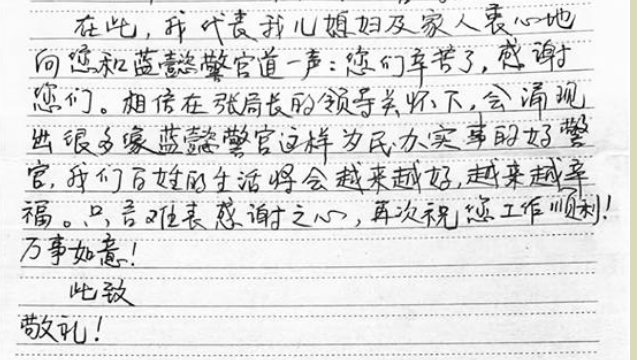 在此，我代表我儿媳妇及家人衷心地
向您和蓝懿警官道一声：您们辛苦了，感谢
您们。相信在张局长的领导关怀下，会涌现
出很多像蓝懿警官这样为民办实事的好警
官，我们百姓的生活将会越来越好，越来越幸
福。只言难表感谢之心，再次祝您工作顺利！
万事如意！
此致
敬礼！